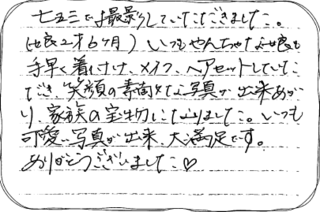 七五三で撮影していただきました。
(次女2才6ヶ月) いつもやんちゃな次女も
手早く着付け、メイク、ヘアセットしていた
だき、笑顔の素敵な写真が出来あが
り、家族の宝物になりました。いつも
可愛い写真が出来、大満足です。
ありがとうございました♡